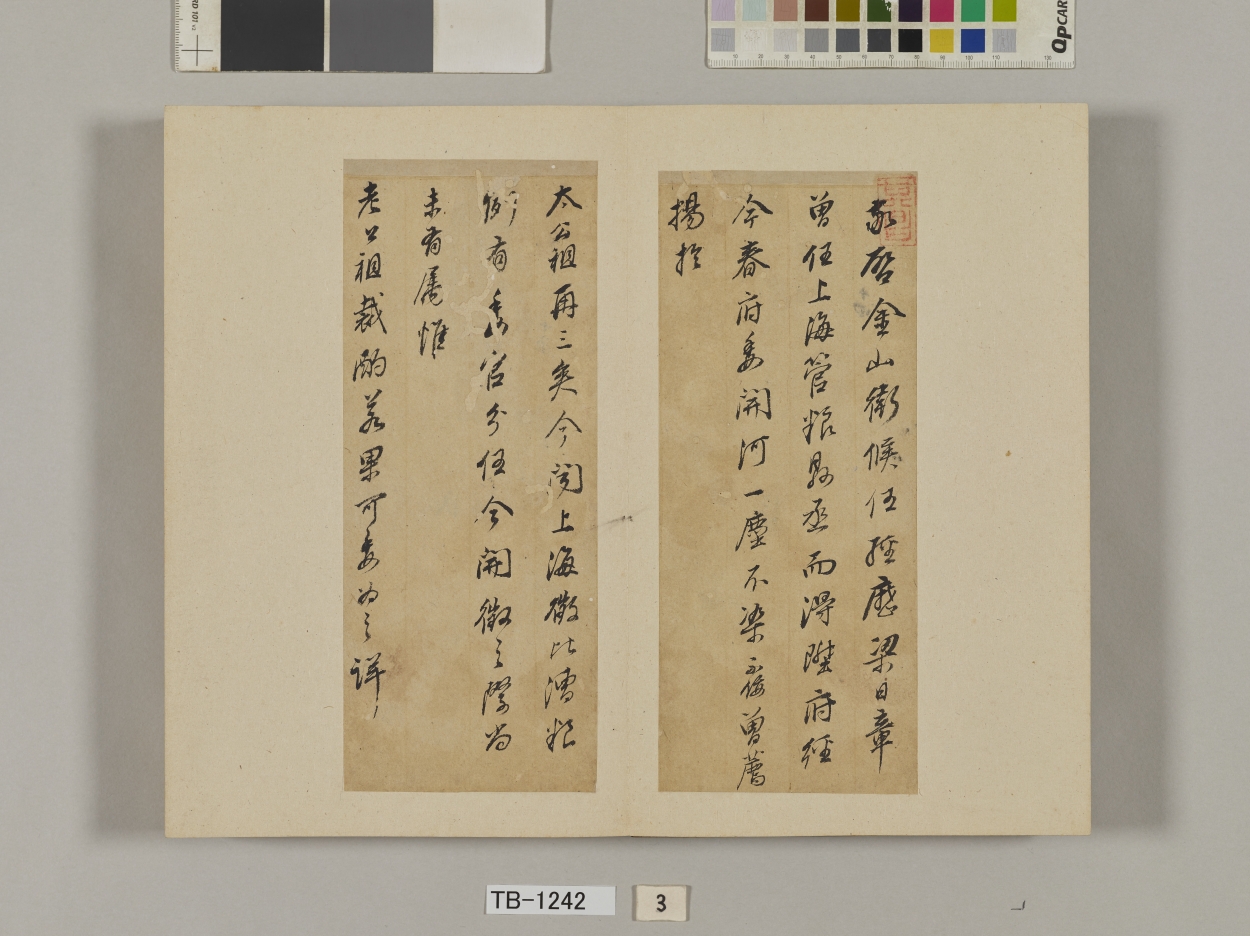 敬啓金山衛候任經歷梁日章
曾任上海管粮縣丞而得陞府經
今春府委開河一塵不染不佞曾薦
揚於
太公祖再三矣今聞上海徵比漕粮
例有委官分任今開徵之際尚
未有屬惟
老公祖裁酌若果可委為之詳
TB-1242
3